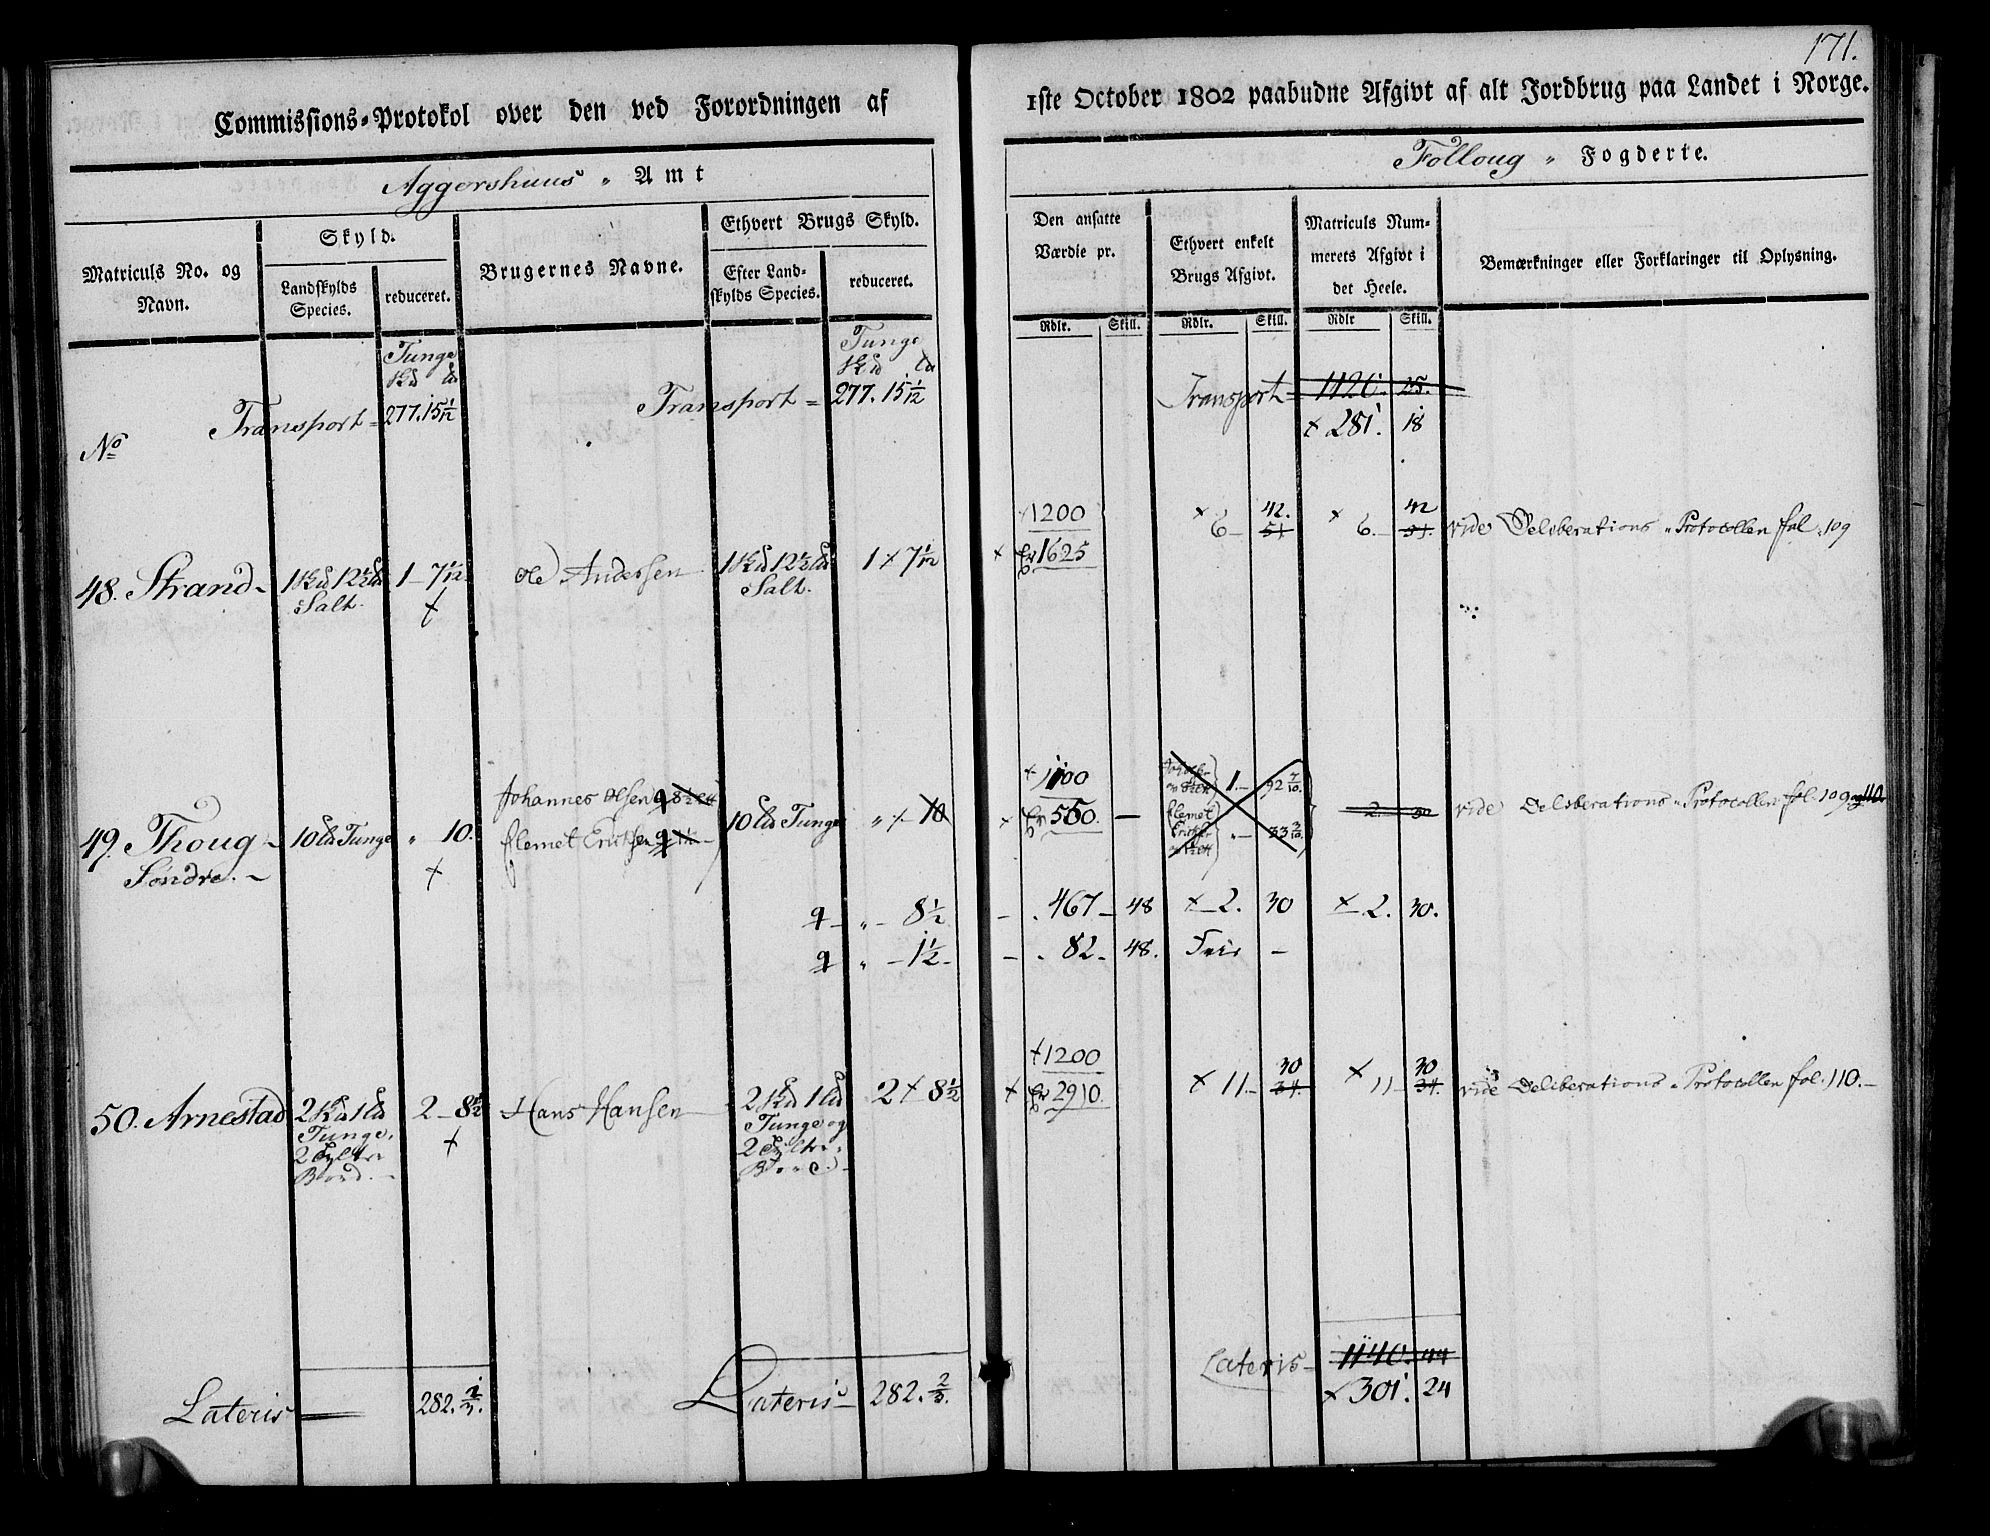 171.
Commissions-Protokol over den ved Forordningen af
1ste October 1802 paabudne Afgivt af alt Jordbrug paa Landet i Norge.
Aggershuus " Amt
Follong " Fogderie.
Matriculs No. og Navn.
Skyld.
Landskylds Species.
reduceret.
Brugernes Navne.
Ethvert Brugs Skyld.
Efter Landskylds Species.
reduceret.
Den ansatte Værdie pr.
Ethvert enkelt Brugs Afgivt.
Matriculs Nummerets Afgivt i det Heele.
Bemærkninger eller Forklaringer til Oplysning.
Rdlr. Skill. Rdlr. Skill. Rdlr Skill.
Tunge
Tunge
No
Transport = 277. 15 1/12
Transport = 277. 15 1/12
Transport = 1120. 25.
x 281. 18
48. Strand 1 12 1/2 Salt. 1 – 7 1/12 Ole Andersen 1 12 1/2 Salt. 1 x 7 1/12
1200
1625
x 6 – 42. 51
x 6 – 42
vide Deliberations Protocollen fol. 109
49. Thoug Søndre. 10 Tunge " 10.
Johannes Olsen 8 1/2
Clemet Ericksen 1 1/2
10 Tunge " 10
1100
550. –
1. – 92 7/10
Clemet " – 33 3/10
2. – 30
vide Deliberations Protocollen fol. 109 og 110.
" – 8 1/2 – 467 – 48 x 2. 30 x 2. 30.
" – 1 1/2 – 82 – 48. Frie –
50. Arnestad 2 1 Tunge, 2 Bord. 2 – 8 1/2 Hans Hansen 2 1 Tunge og 2 2 x 8 1/2
1200
2910.
x 11 – 30 34.
x 11 – 30 34.
vide Deliberations Protocollen fol. 110. –
Lateris 282. 2/3.
Lateris – 282. 2/3.
Lateris – 1140. 44
x 301. 24